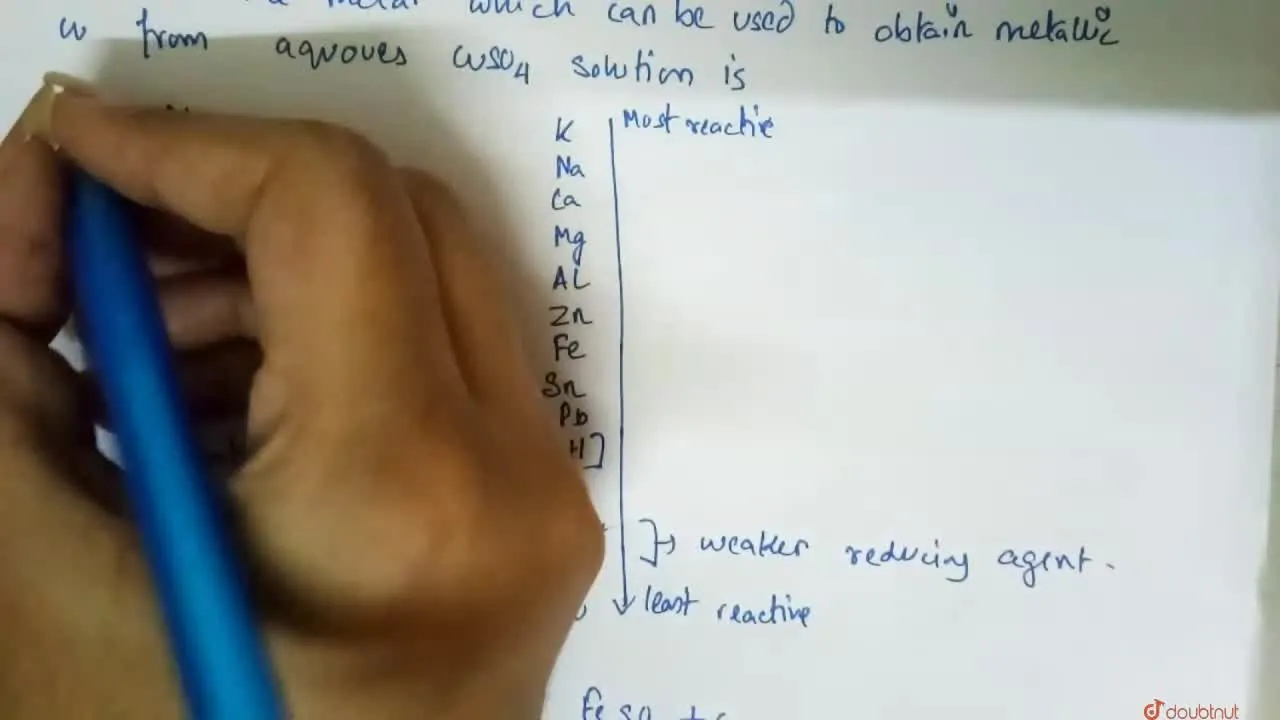 metal which can be used to obtain metallic
cu from aquoves cuso4 solution is
K Most reactie
Na
Ca
Mg
AL
Zn
Fe
Sn
Pb
H]
}→ weaker reducing agent.
least reactive
Fe so
doubtnut